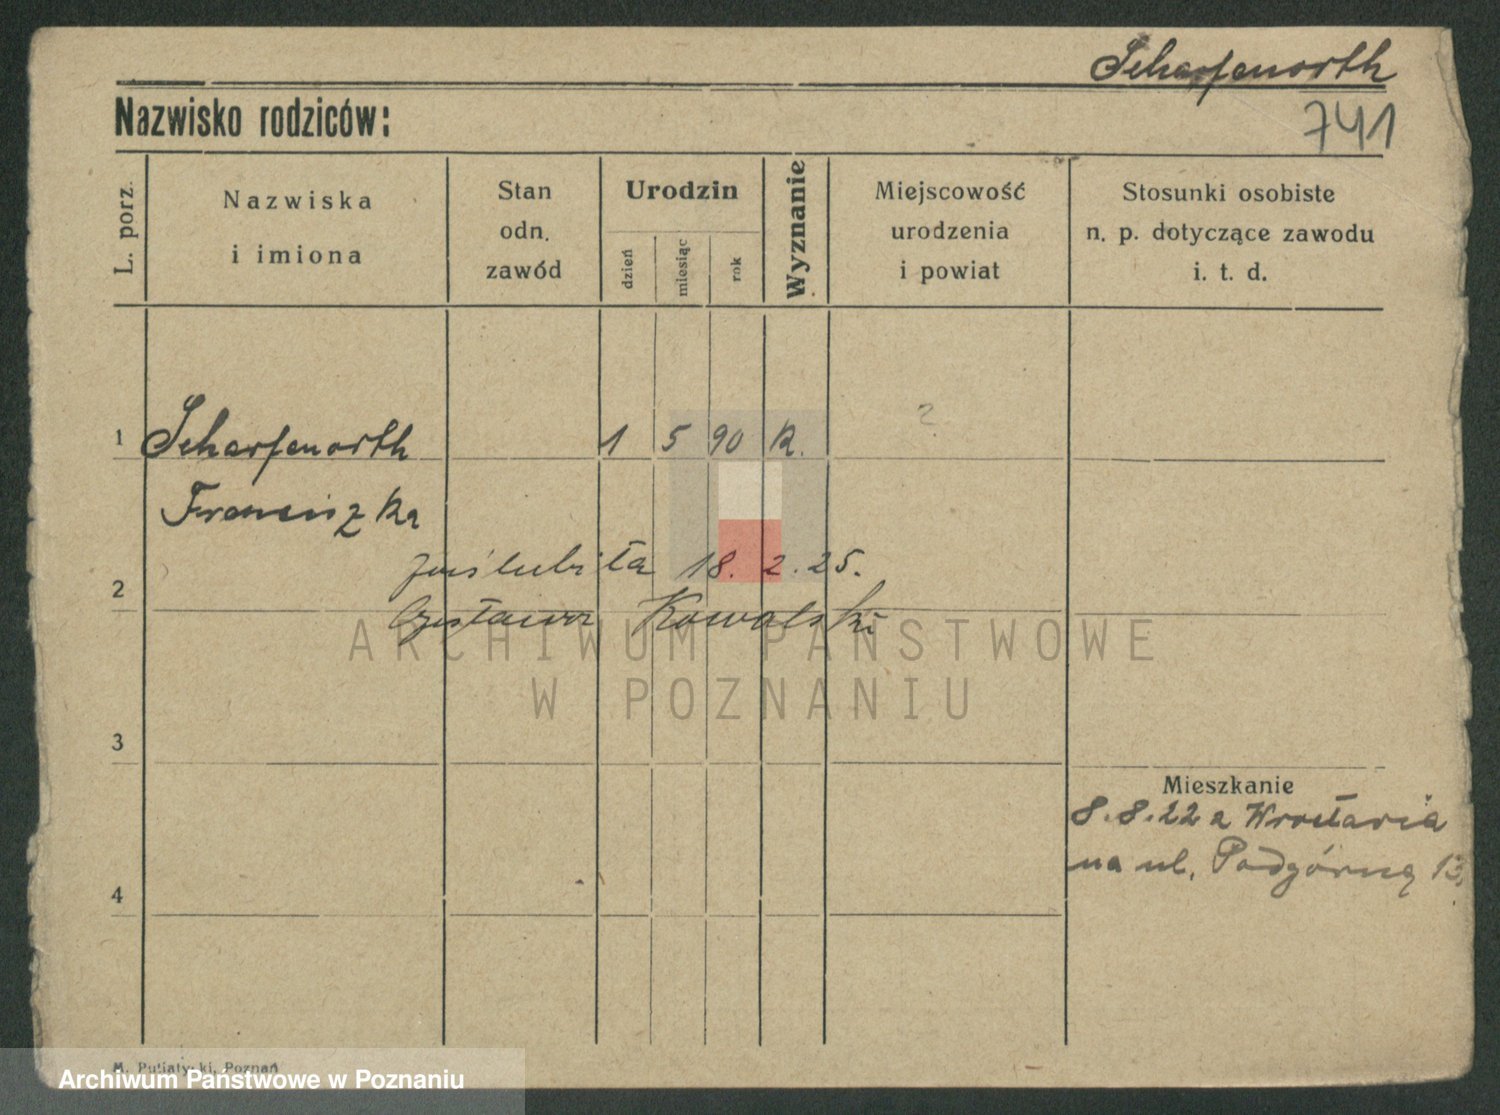 Scharfenorth
Nazwisko rodziców:
741
L. porz.
Nazwiska
i imiona
Stan
odn.
zawód
Urodzin
dzień
miesiąc
rok
Wyznanie
Miejscowość
urodzenia
i powiat
Stosunki osobiste
n. p. dotyczące zawodu
i. t. d.
1 Scharfenorth 1 5 90 K. ?
Franciszka
zaślubiła 18. 2. 25.
2
Kowalski
ARCHIWUM PAŃSTWOWE
W POZNANIU
3
Mieszkanie
8.8.22 z Wrocławia
na ul. Podgórną 13.
4
M. Putiatycki, Poznań
Archiwum Państwowe w Poznaniu